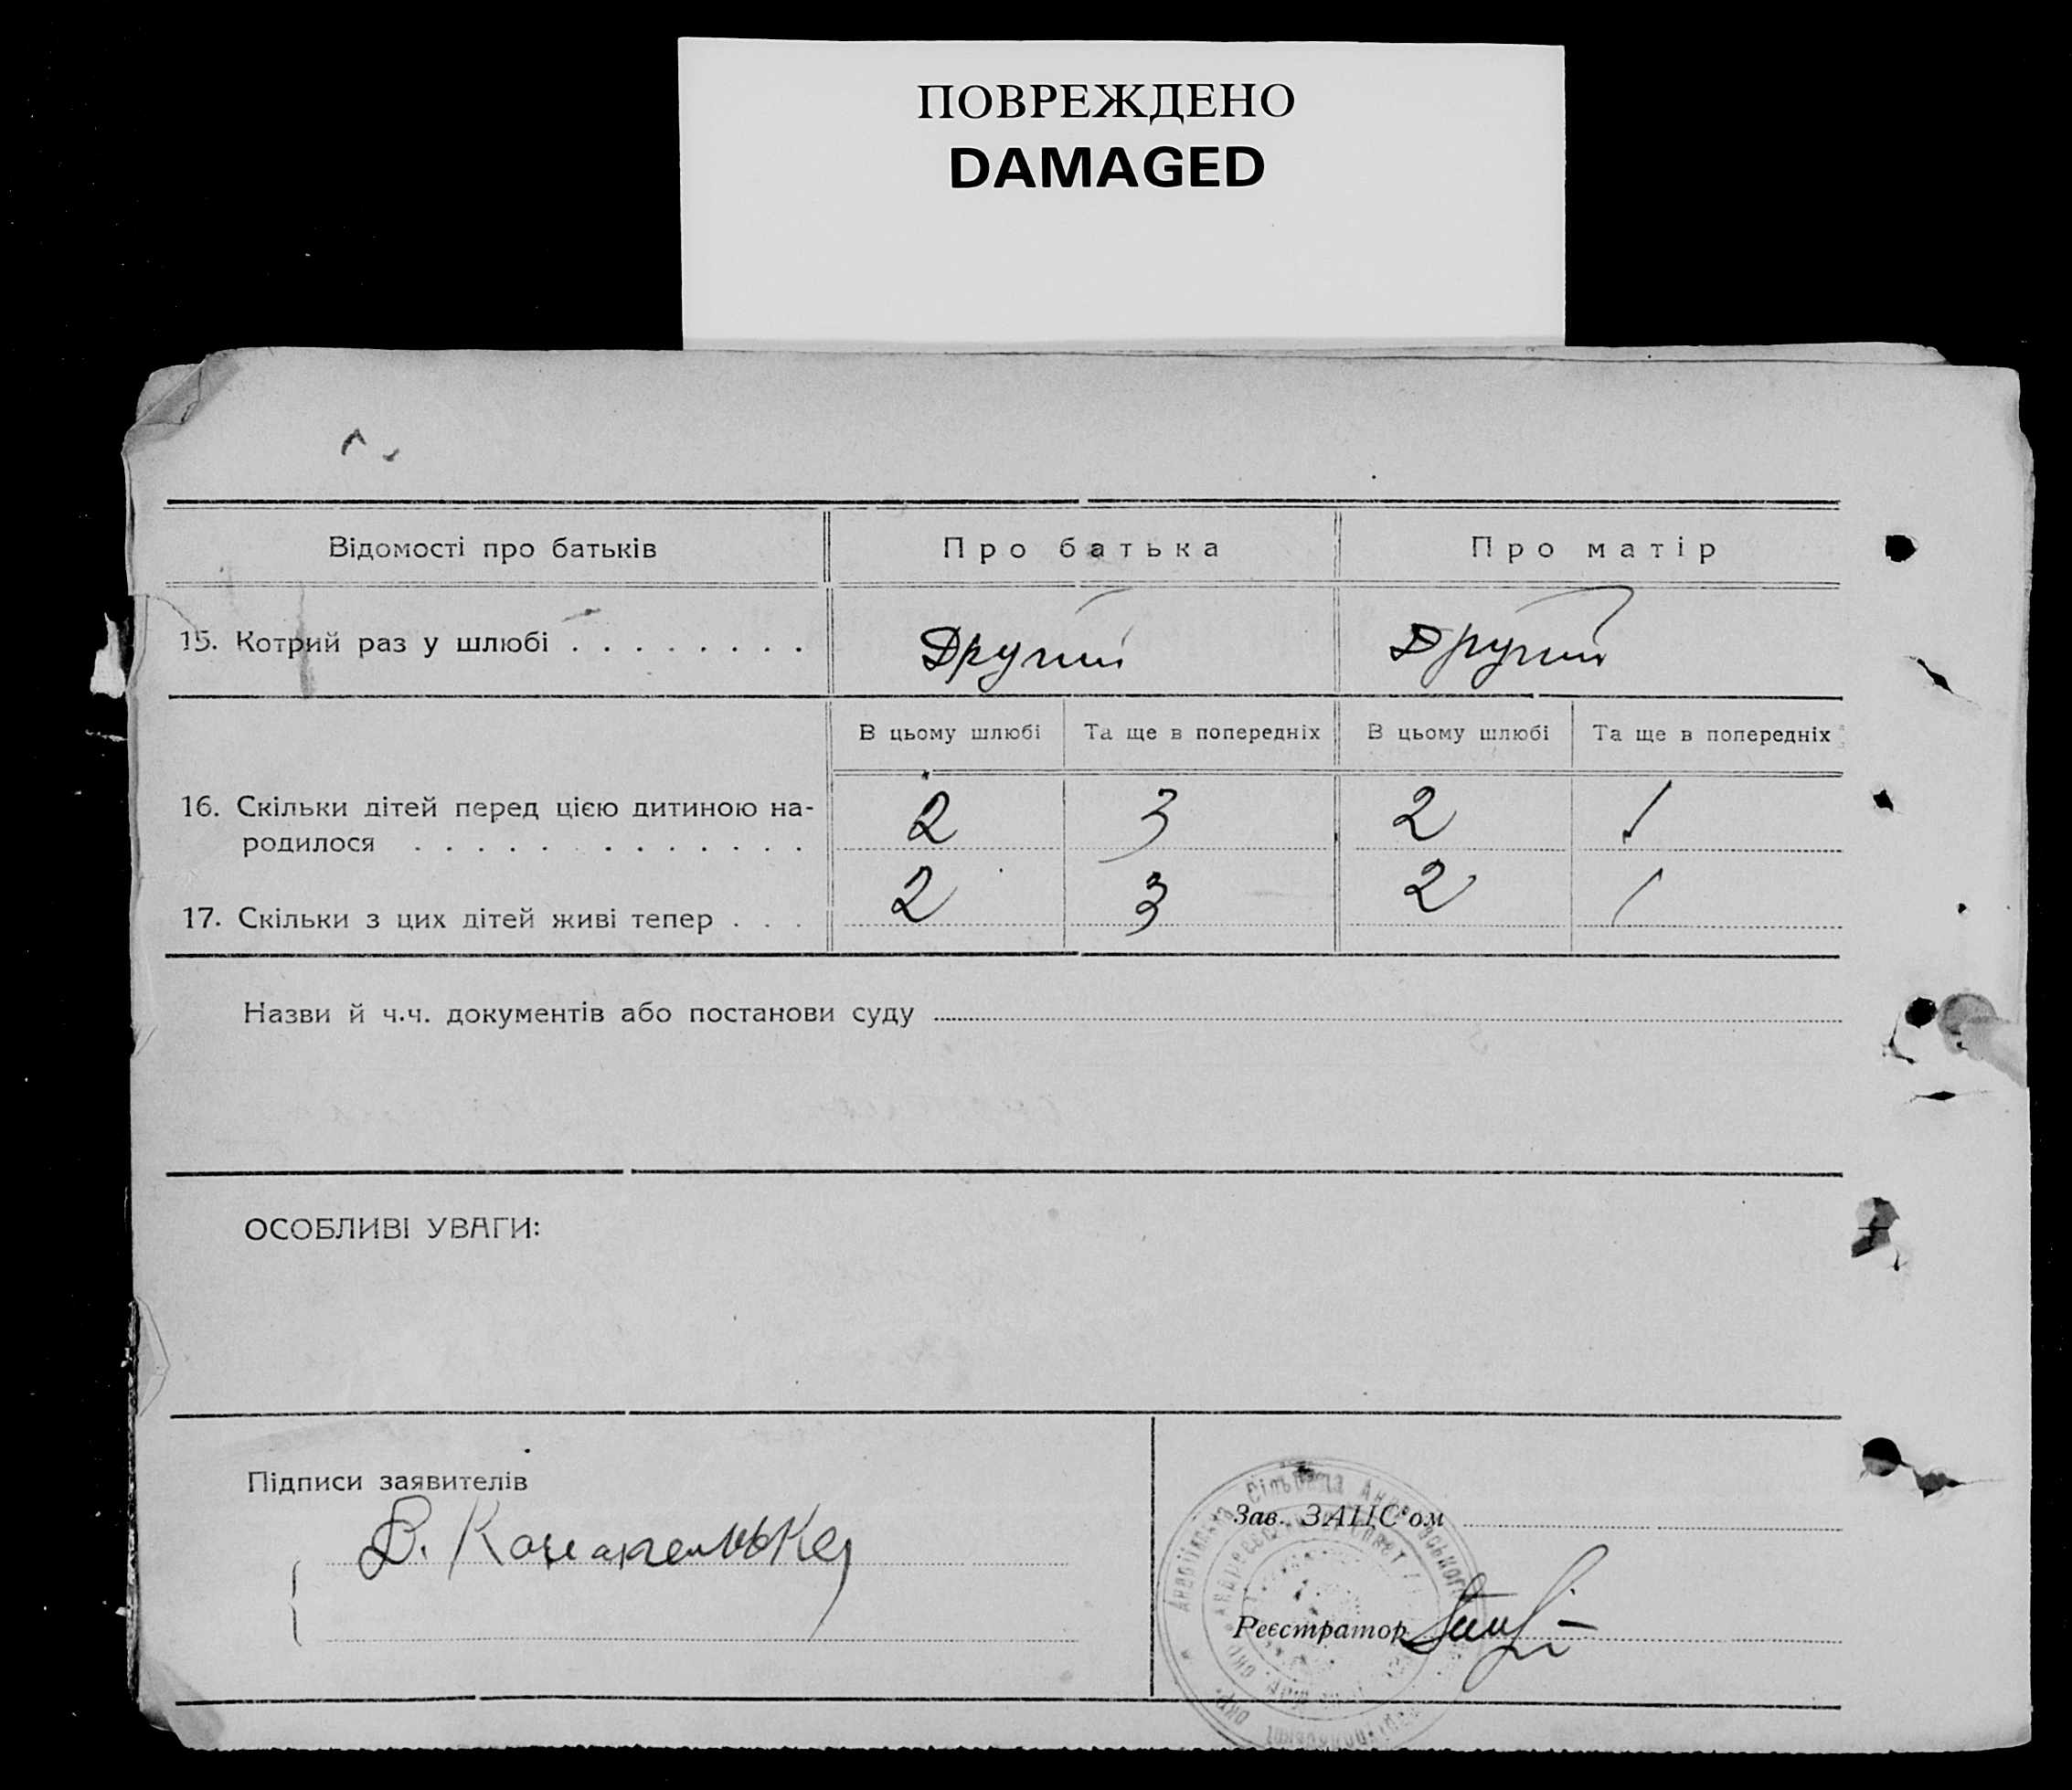 ПОВРЕЖДЕНО
DAMAGED
Відомості про батьків
Про батька
Про матір
15. Котрий раз у шлюбі . . . . . . . .
Другий
Другий
В цьому шлюбі
Та ще в попередніх
В цьому шлюбі
Та ще в попередніх
16. Скільки дітей перед цією дитиною на-
родилося . . . . . . . . . . . . .
2
3
2
1
17. Скільки з цих дітей живі тепер . . .
2
3
2
1
Назви й ч.ч. документів або постанови суду
ОСОБЛИВІ УВАГИ:
Підписи заявителів
Зав. ЗАЦС'ом
Реєстратор
Сільрада